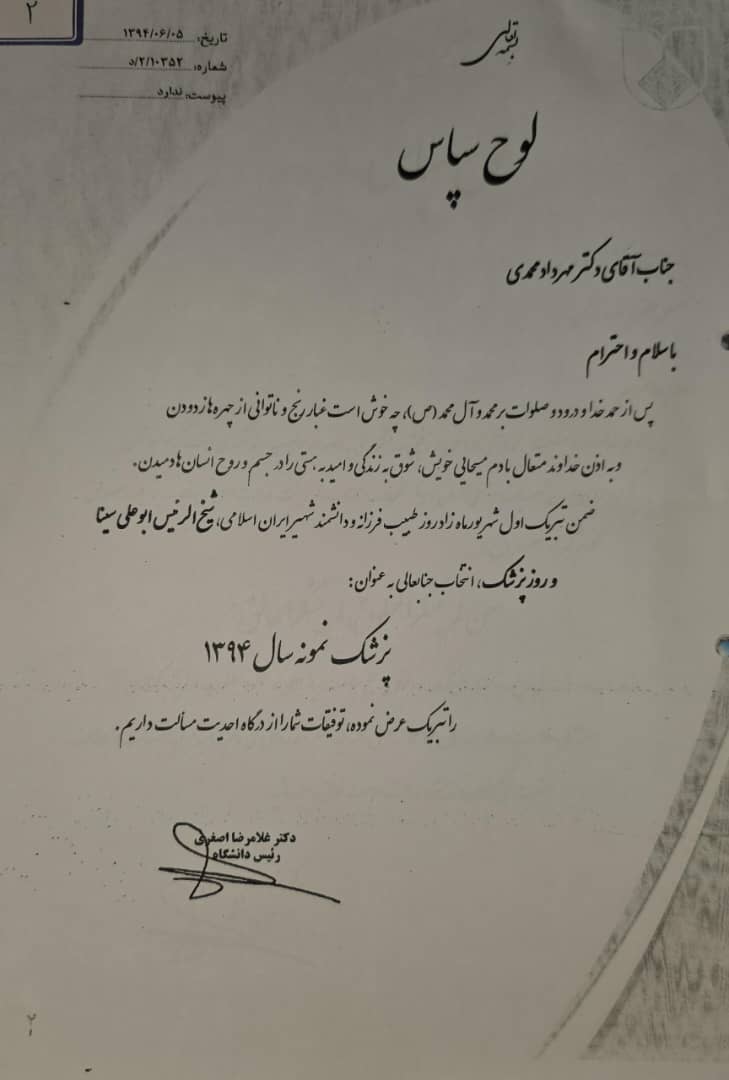 ۲
تاریخ: ۱۳۹۴/۰۶/۰۵
شماره: ۲/۱۰۳۵۲/د
پیوست: ندارد
بسمه تعالی
لوح سپاس
جناب آقای دکتر مهرداد محمدی
با سلام و احترام
پس از حمد خدا و درود و صلوات بر محمد و آل محمد (ص)، چه خوش است غبار رنج و ناتوانی از چهره ها زدودن
و به اذن خداوند متعال با دم مسیحایی خویش، شوق به زندگی و امید به هستی را در جسم و روح انسان ها دمیدن.
ضمن تبریک اول شهریور ماه زادروز طبیب فرزانه و دانشمند شهیر ایران اسلامی، شیخ الرئیس ابوعلی سینا
و روز پزشک، انتخاب جنابعالی به عنوان:
پزشک نمونه سال ۱۳۹۴
را تبریک عرض نموده، توفیقات شما را از درگاه احدیت مسألت داریم.
دکتر غلامرضا اصغری
رئیس دانشگاه
۲